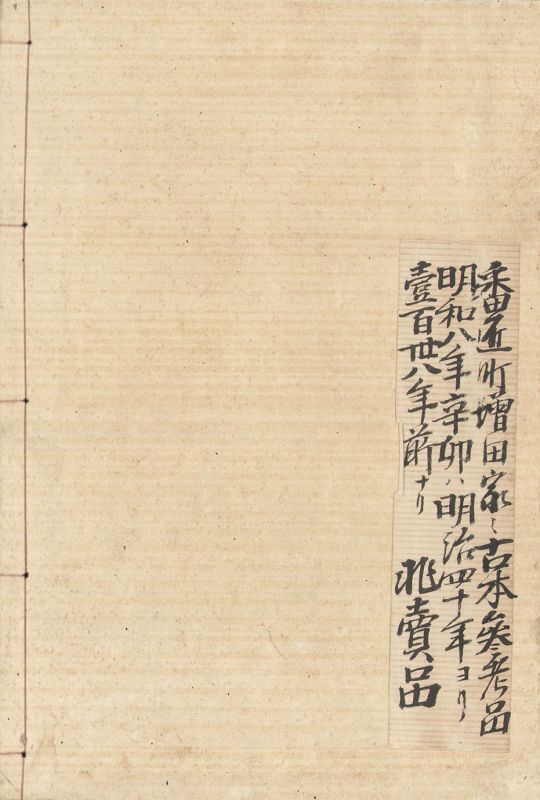 増田家ニ古本參考品
明和八年辛卯ハ明治四十年ヨリ
壹百卅八年前ナリ 非賣品